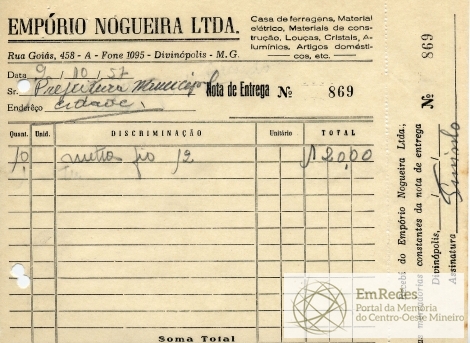 EMPÓRIO NOGUEIRA LTDA.
Rua Goiás, 458 - A - Fone 1095 - Divinópolis - M.G.
Casa de ferragens, Material
elétrico, Materiais de cons-
trução, Louças, Cristais, A-
lumínios, Artigos domésti-
cos, etc.
Data 9 / 10 / 57
Sr. Prefeitura Municipal
Endereço Cidade,
Nota de Entrega Nº 869
Quant. Unid. DISCRIMINAÇÃO Unitário TOTAL
10 metros fio 12 $ 20,00
Soma Total
Nº 869
do Empório Nogueira Ltda.,
constantes da nota de entrega
Divinópolis, / /
Assinatura
EmRedes
Portal da Memória
do Centro-Oeste Mineiro